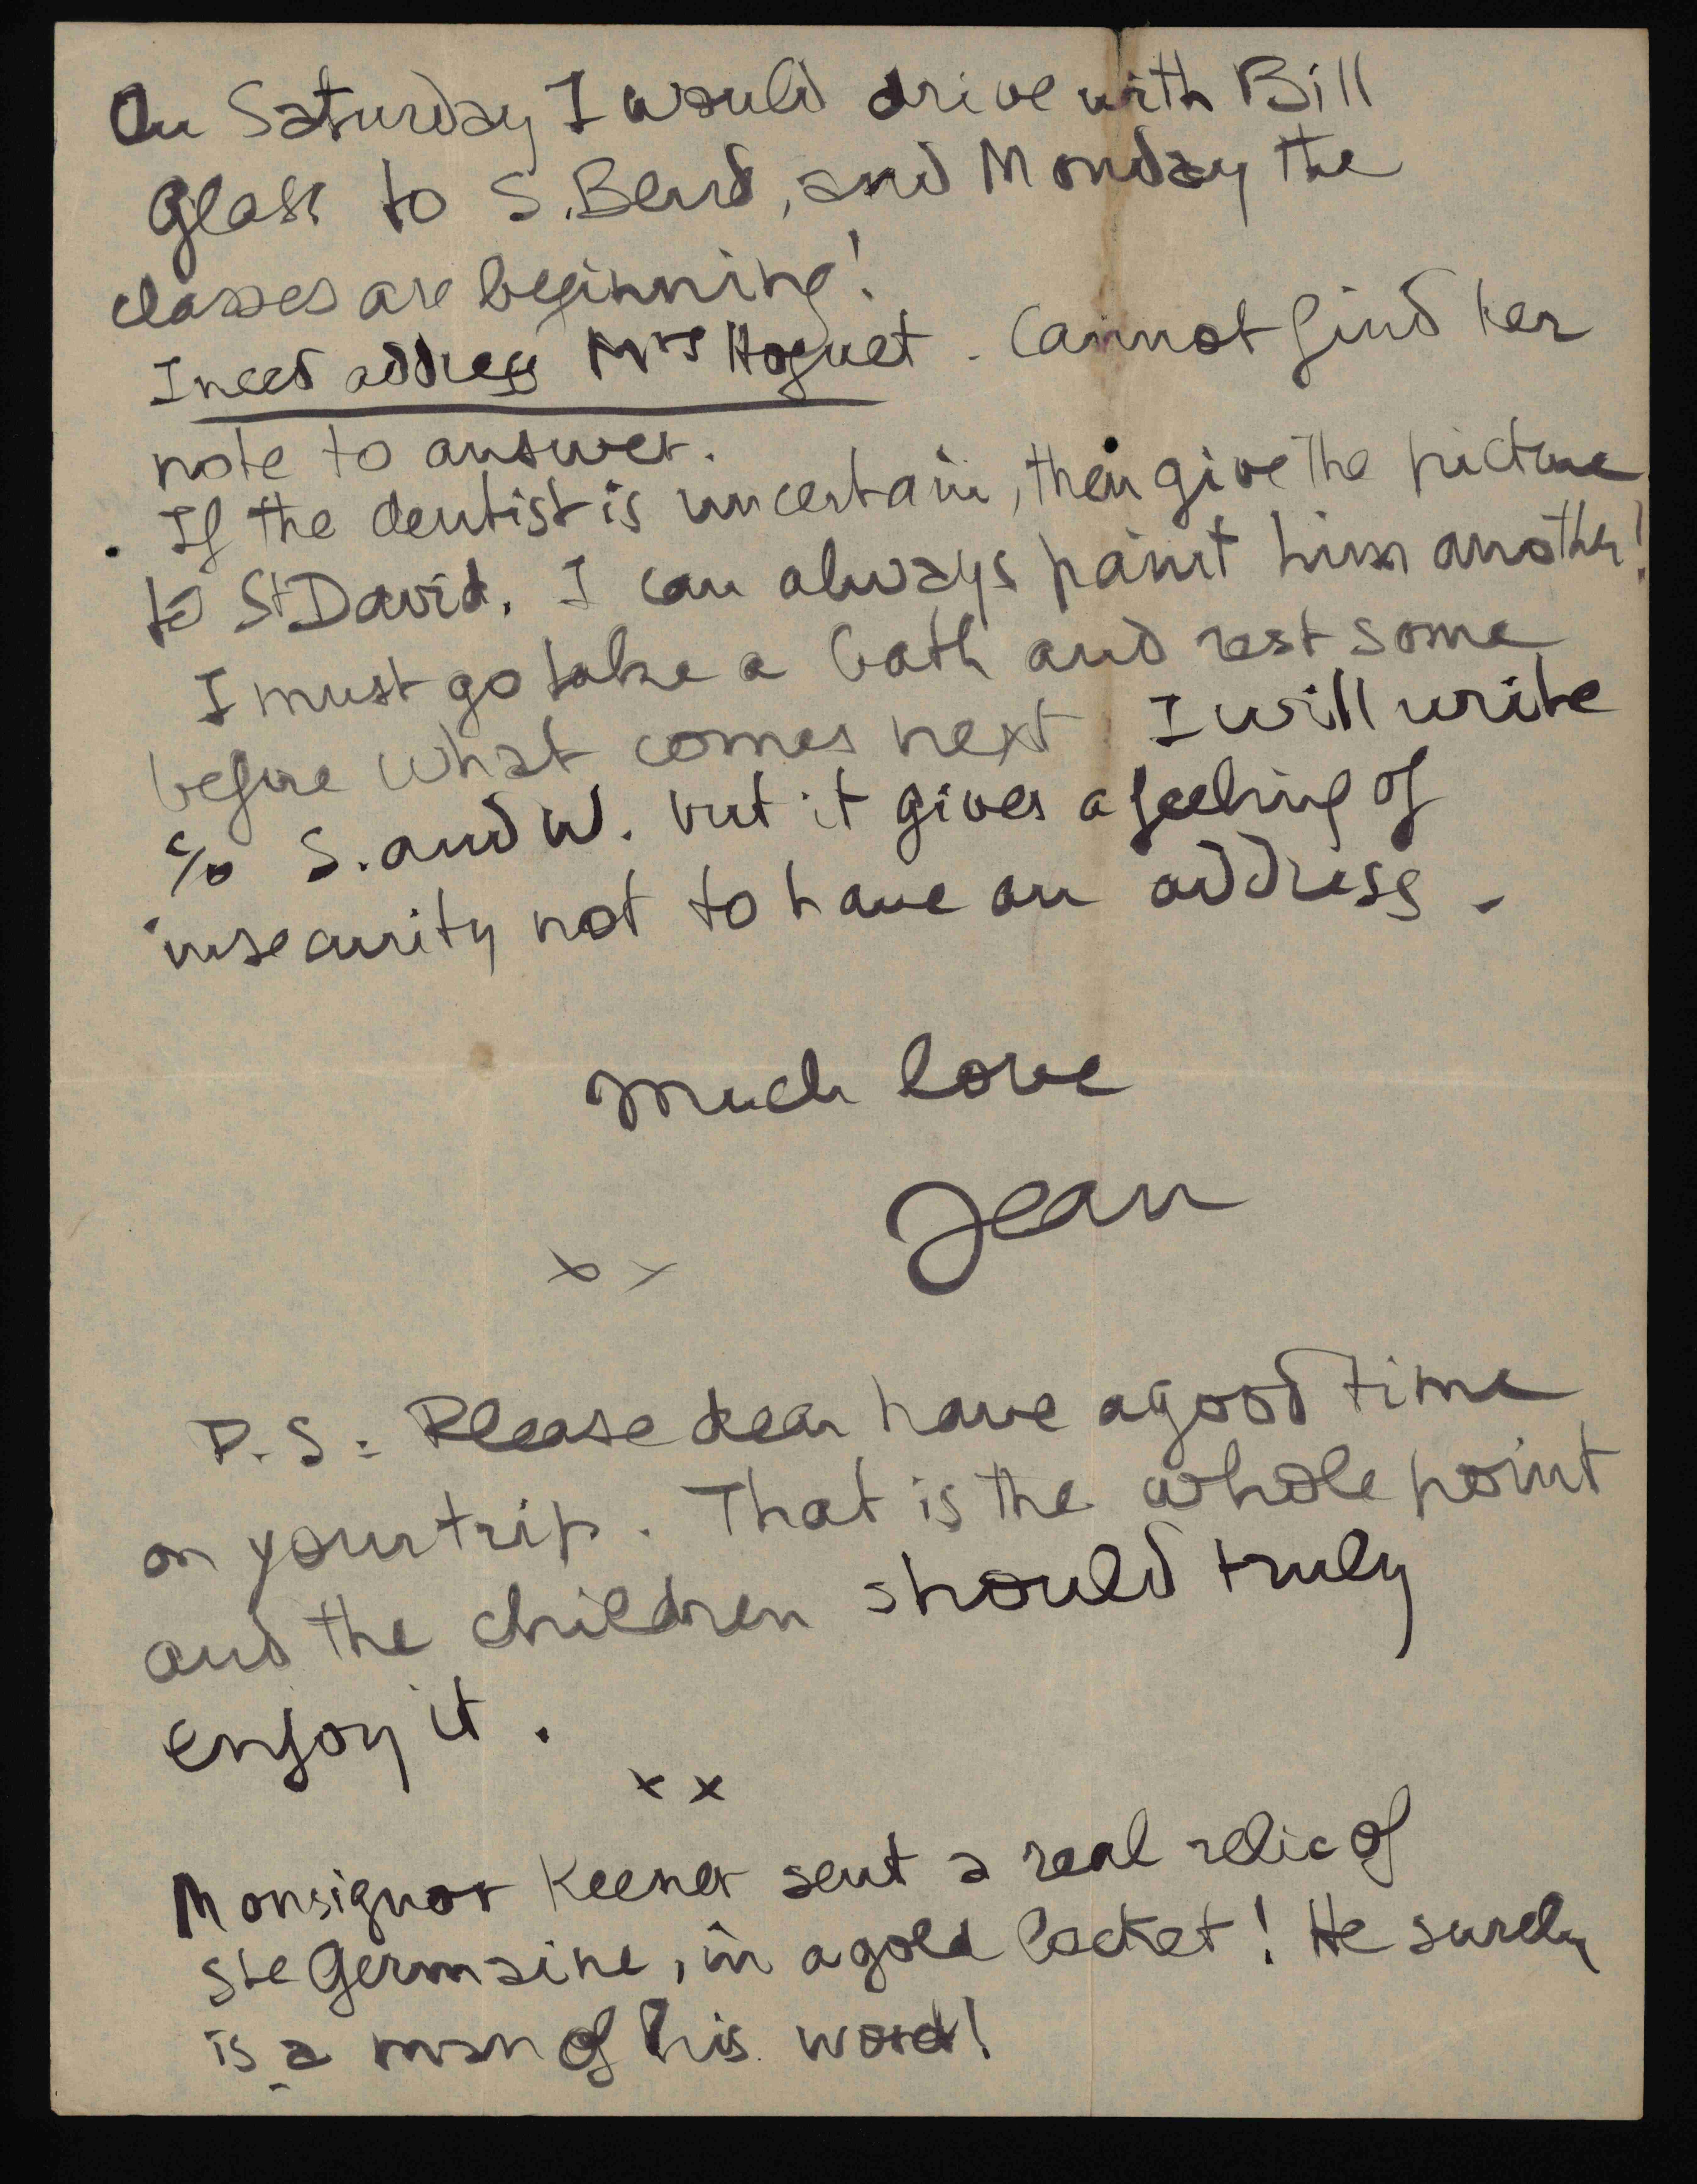 On Saturday I would drive with Bill
Glass to S. Bend, and Monday the
classes are beginning!
I need address Mrs Hoguet. Cannot find her
note to answer.
If the dentist is uncertain, then give the picture
to St David. I can always paint him another!
I must go take a bath and rest some
before what comes next I will write
c/o S. and W. but it gives a feeling of
insecurity not to have an address -
Much love
Jean
x x
P.S: Please dear have a good time
on your trip. That is the whole point
and the children should truly
enjoy it.
x x
Monsignor Keener sent a real relic of
Ste Germaine, in a gold locket! He surely
is a man of his word!